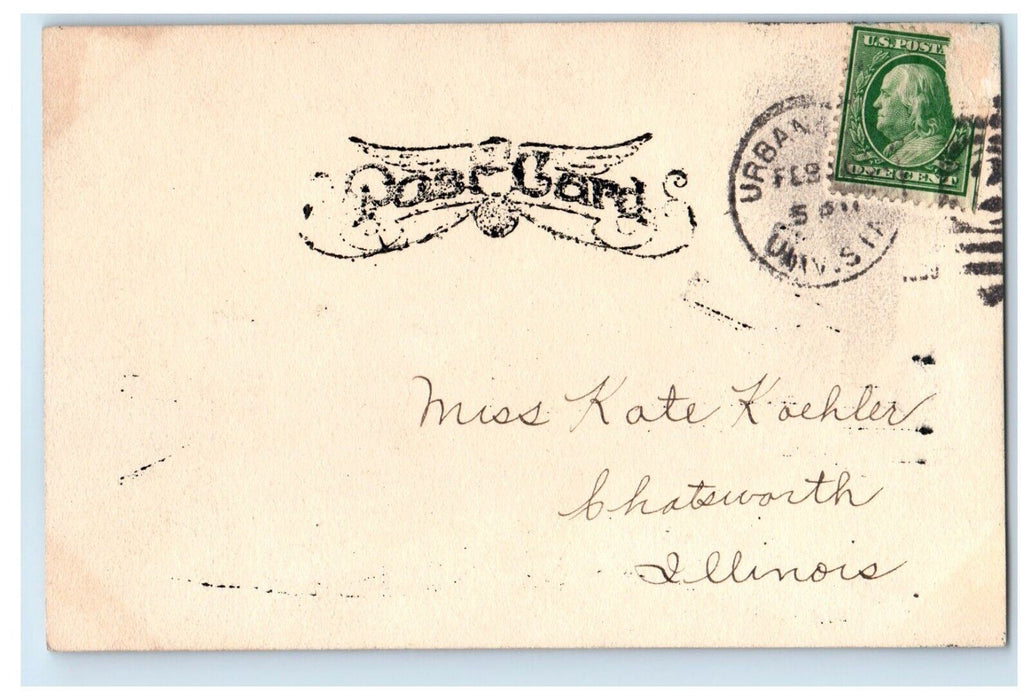 U.S. POSTA
ONE CENT
Post Card
URBANA
FEB
5
UNIV. STA
Miss Kate Koehler
Chatsworth
Illinois